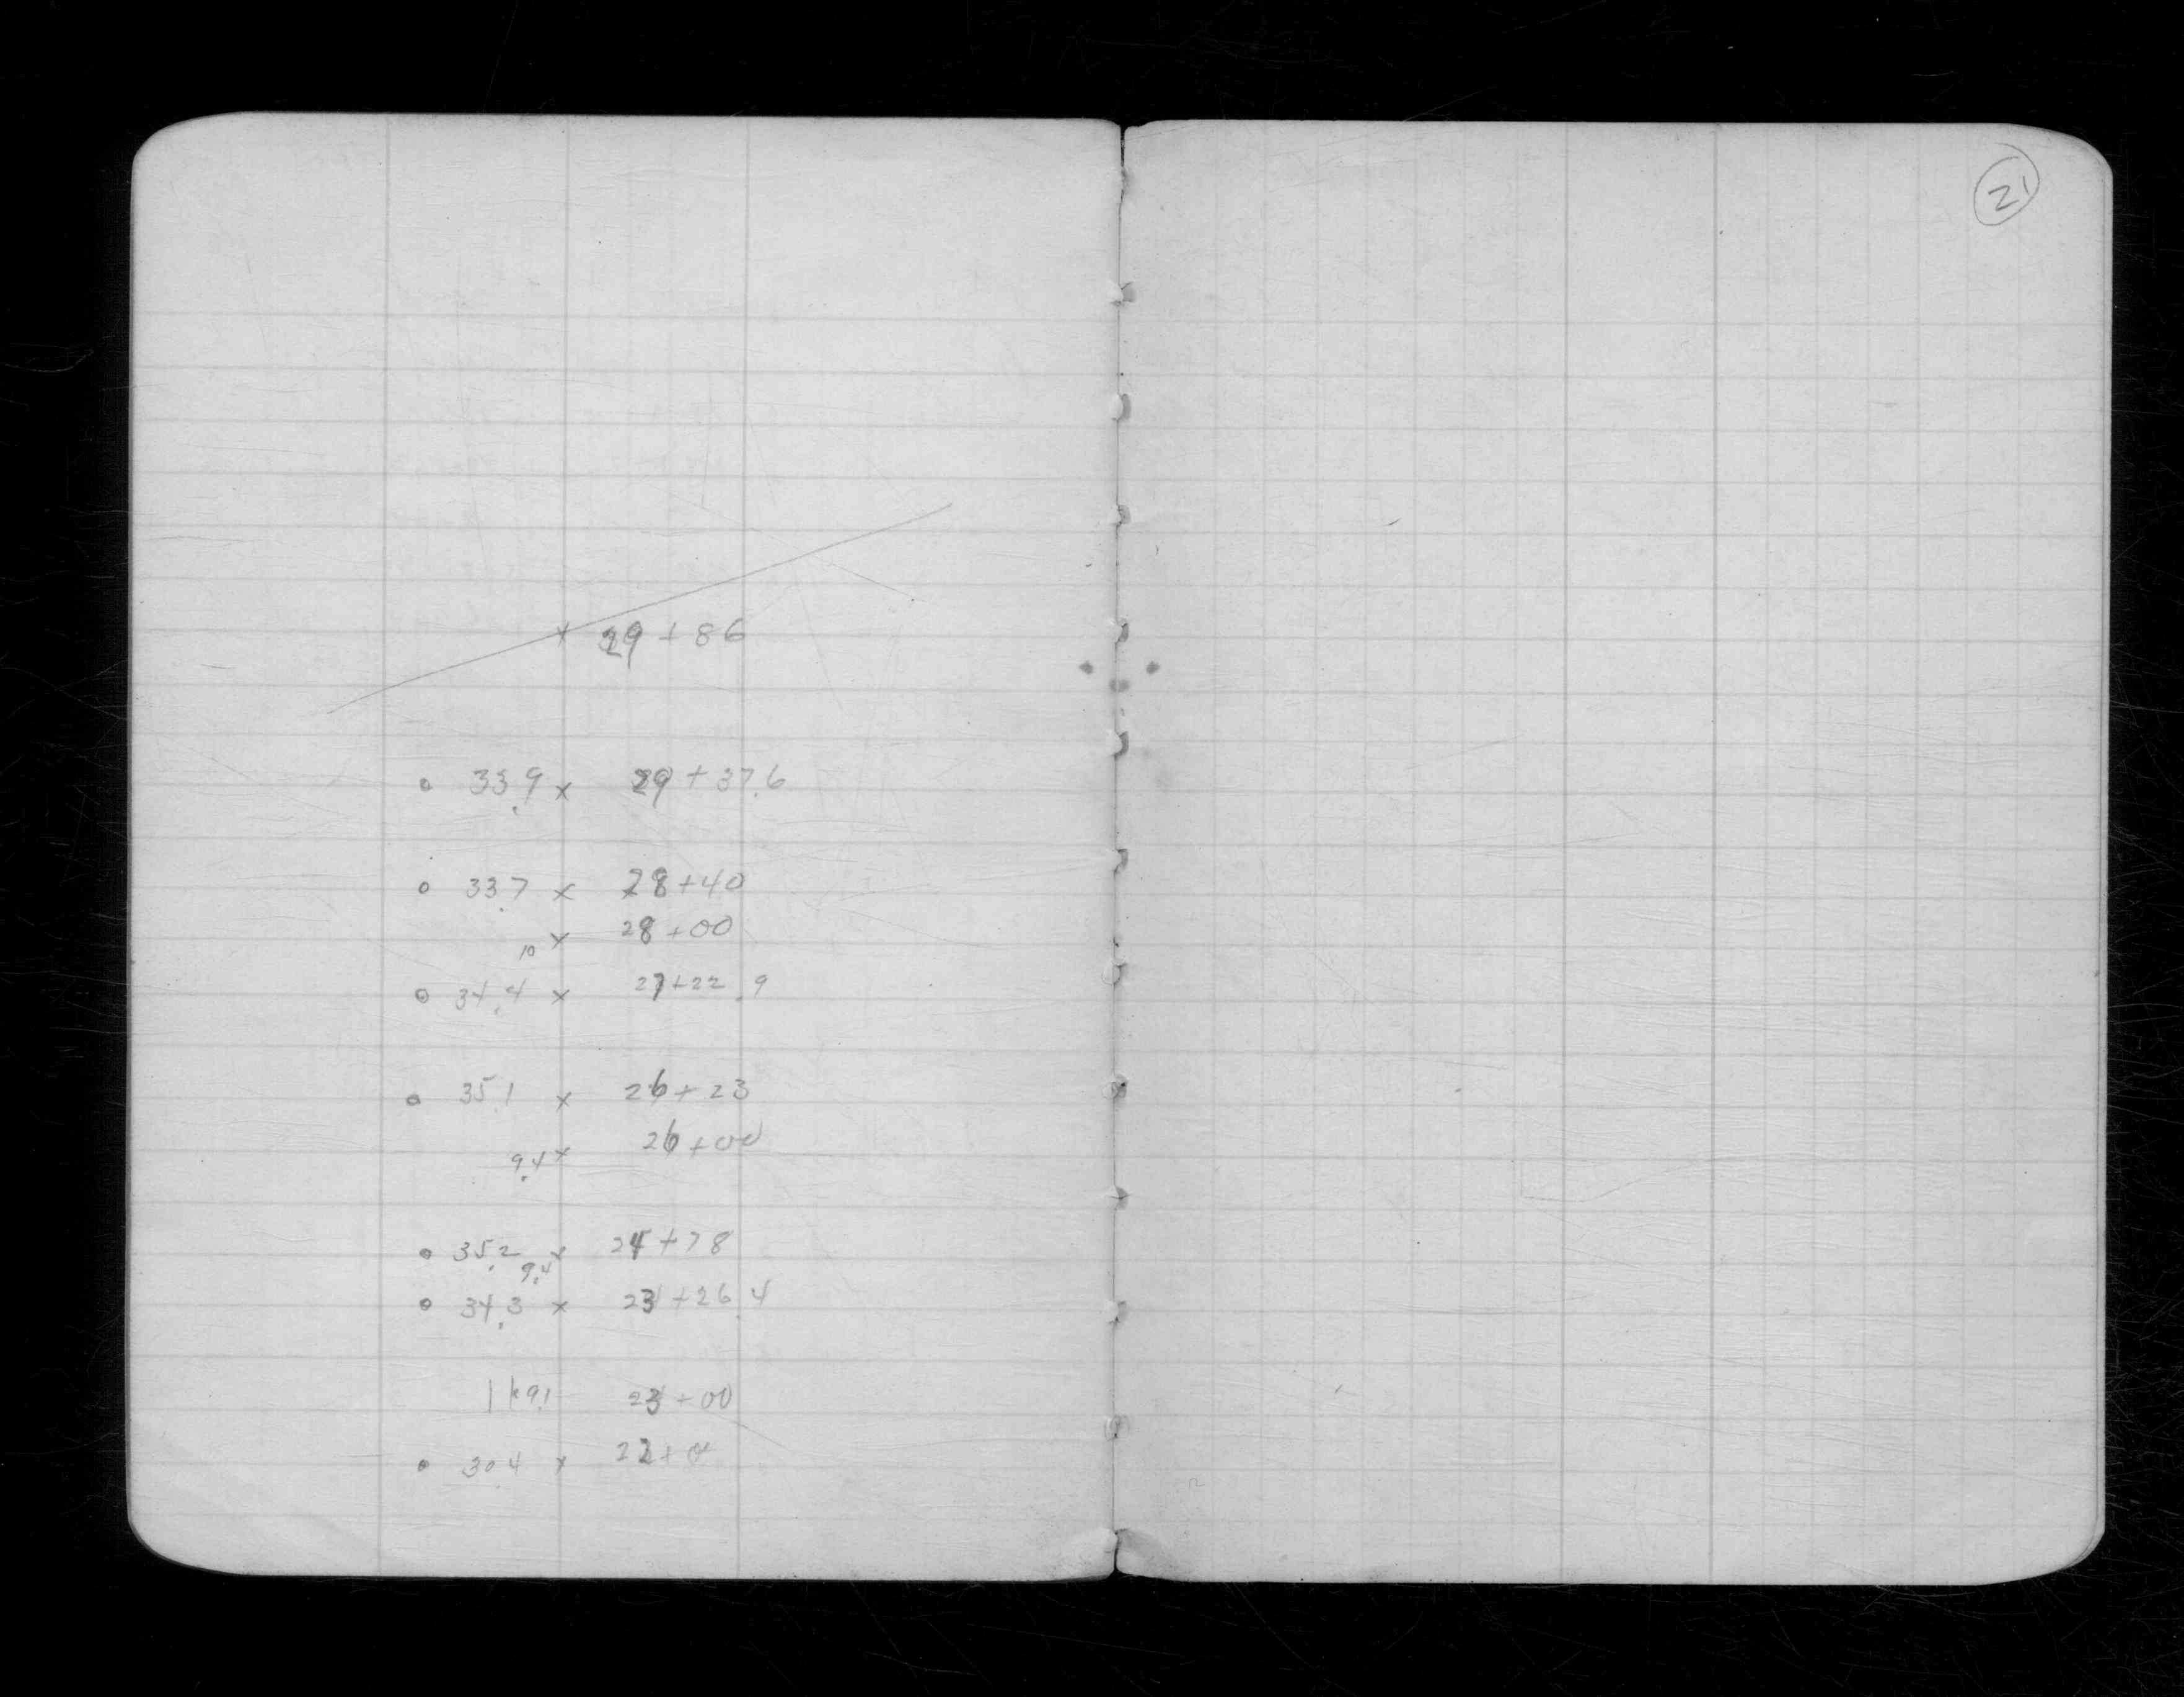 21
x 29+86
o 33.9 x 29+37.6
o 33.7 x 28+40
10 x 28+00
o 34.4 x 27+22.9
o 35.1 x 26+23
9.4 x 26+00
o 35.2 9.4 x 24+78
o 34.3 x 23+26.4
9.1 23+00
o 30.4 x 22+0